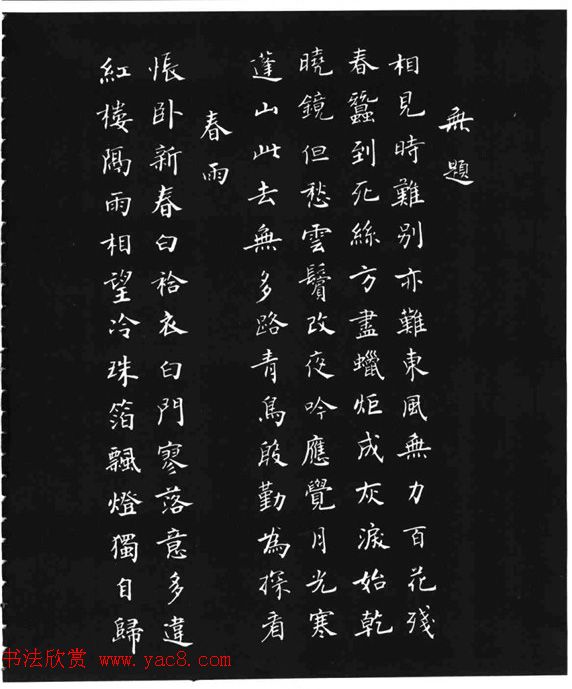 無題
相見時難別亦難東風無力百花殘
春蠶到死絲方盡蠟炬成灰淚始乾
曉鏡但愁雲鬢改夜吟應覺月光寒
蓬山此去無多路青鳥殷勤為探看
春雨
悵卧新春白袷衣白門寥落意多違
紅樓隔雨相望冷珠箔飄燈獨自歸
书法欣赏 www.yac8.com